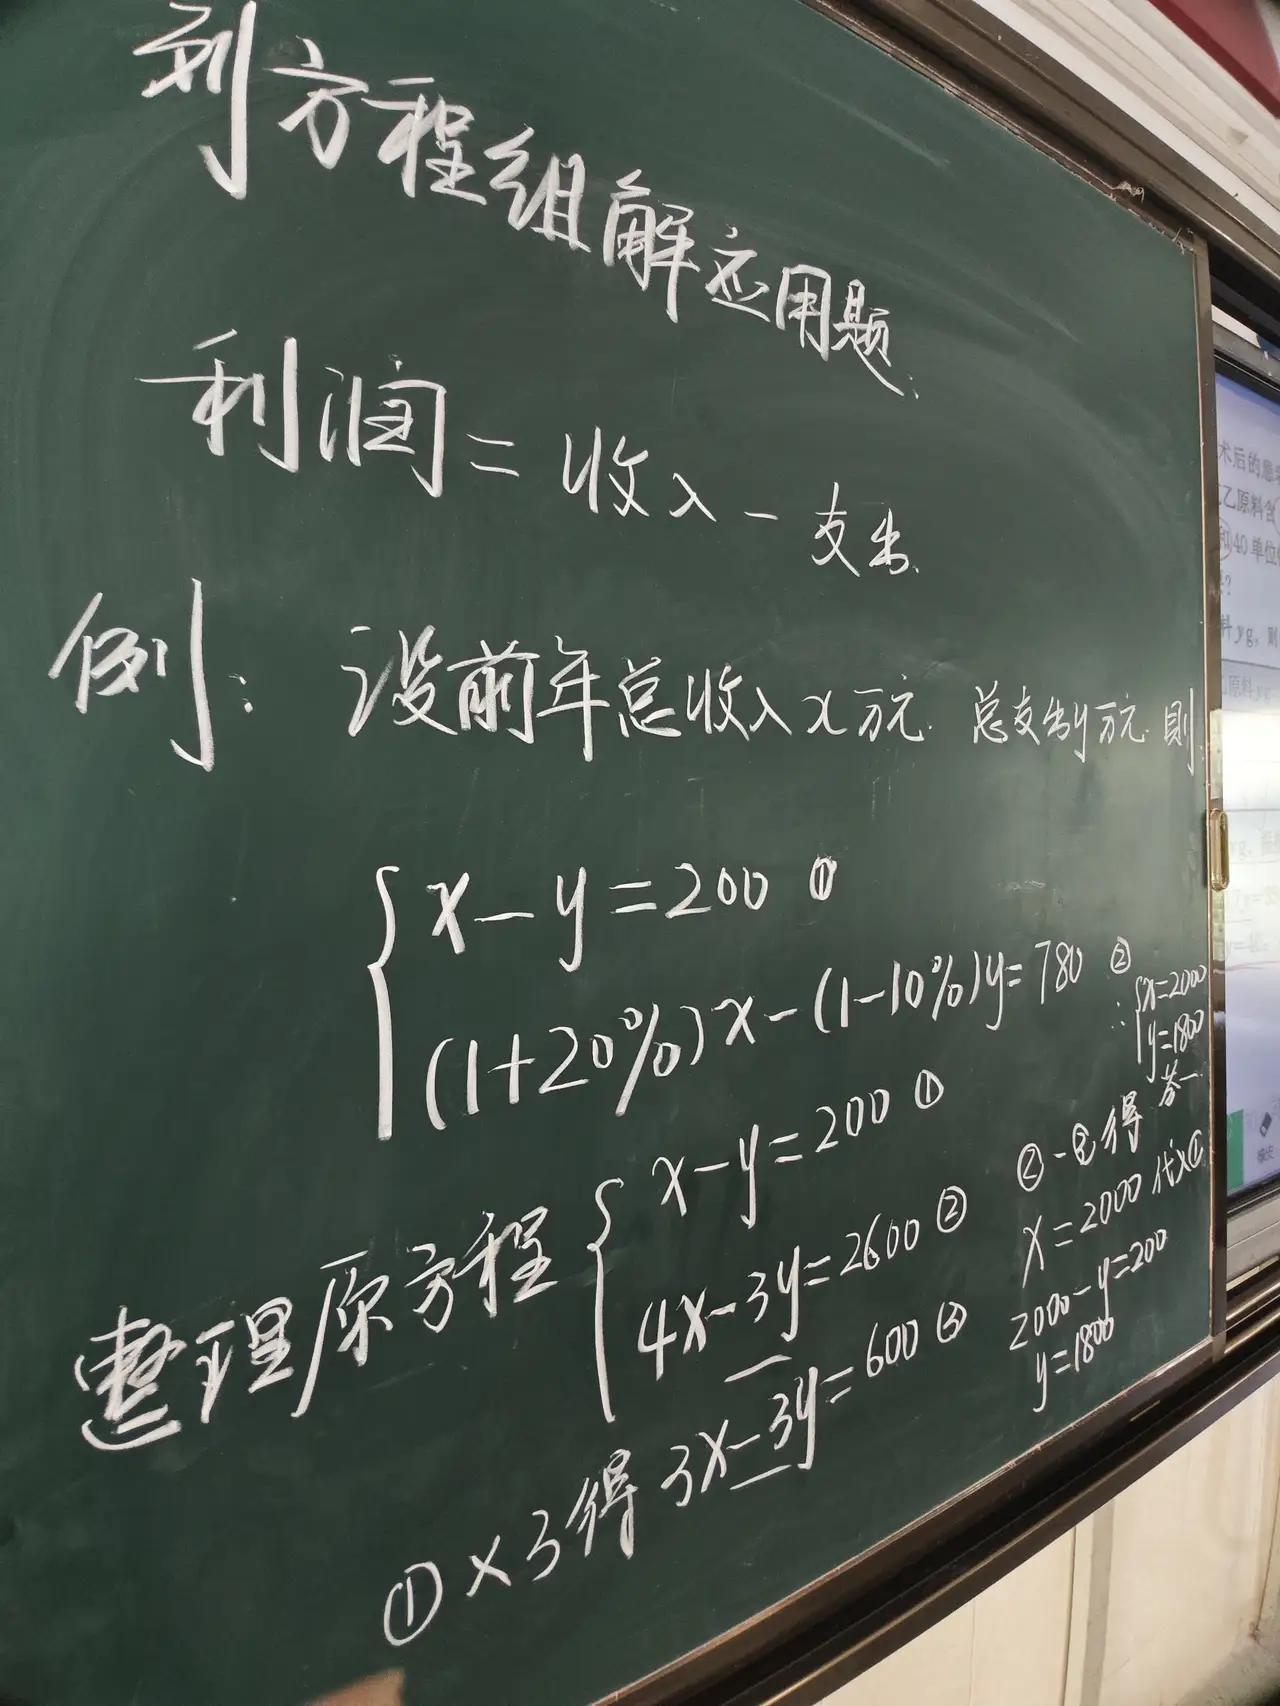 列方程组解应用题.
利润=收入-支出.
例: 设前年总收入x万元. 总支出y万元. 则
x-y=200 ①
(1+20%)x-(1-10%)y=780 ②
整理原方程
x-y=200 ①
4x-3y=2600 ②
①×3得 3x-3y=600 ③
②-③得
x=2000 代入①
2000-y=200
y=1800
∴ x=2000
y=1800
答一
术后的患
乙原料含
和40单位
?
料yg, 则
原料yg